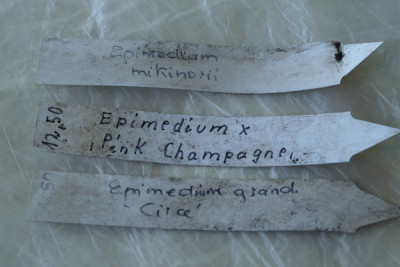 Epimedium
mikinorii
12,50
Epimedium x
'Pink Champagne'
Epimedium grand.
'Circé'